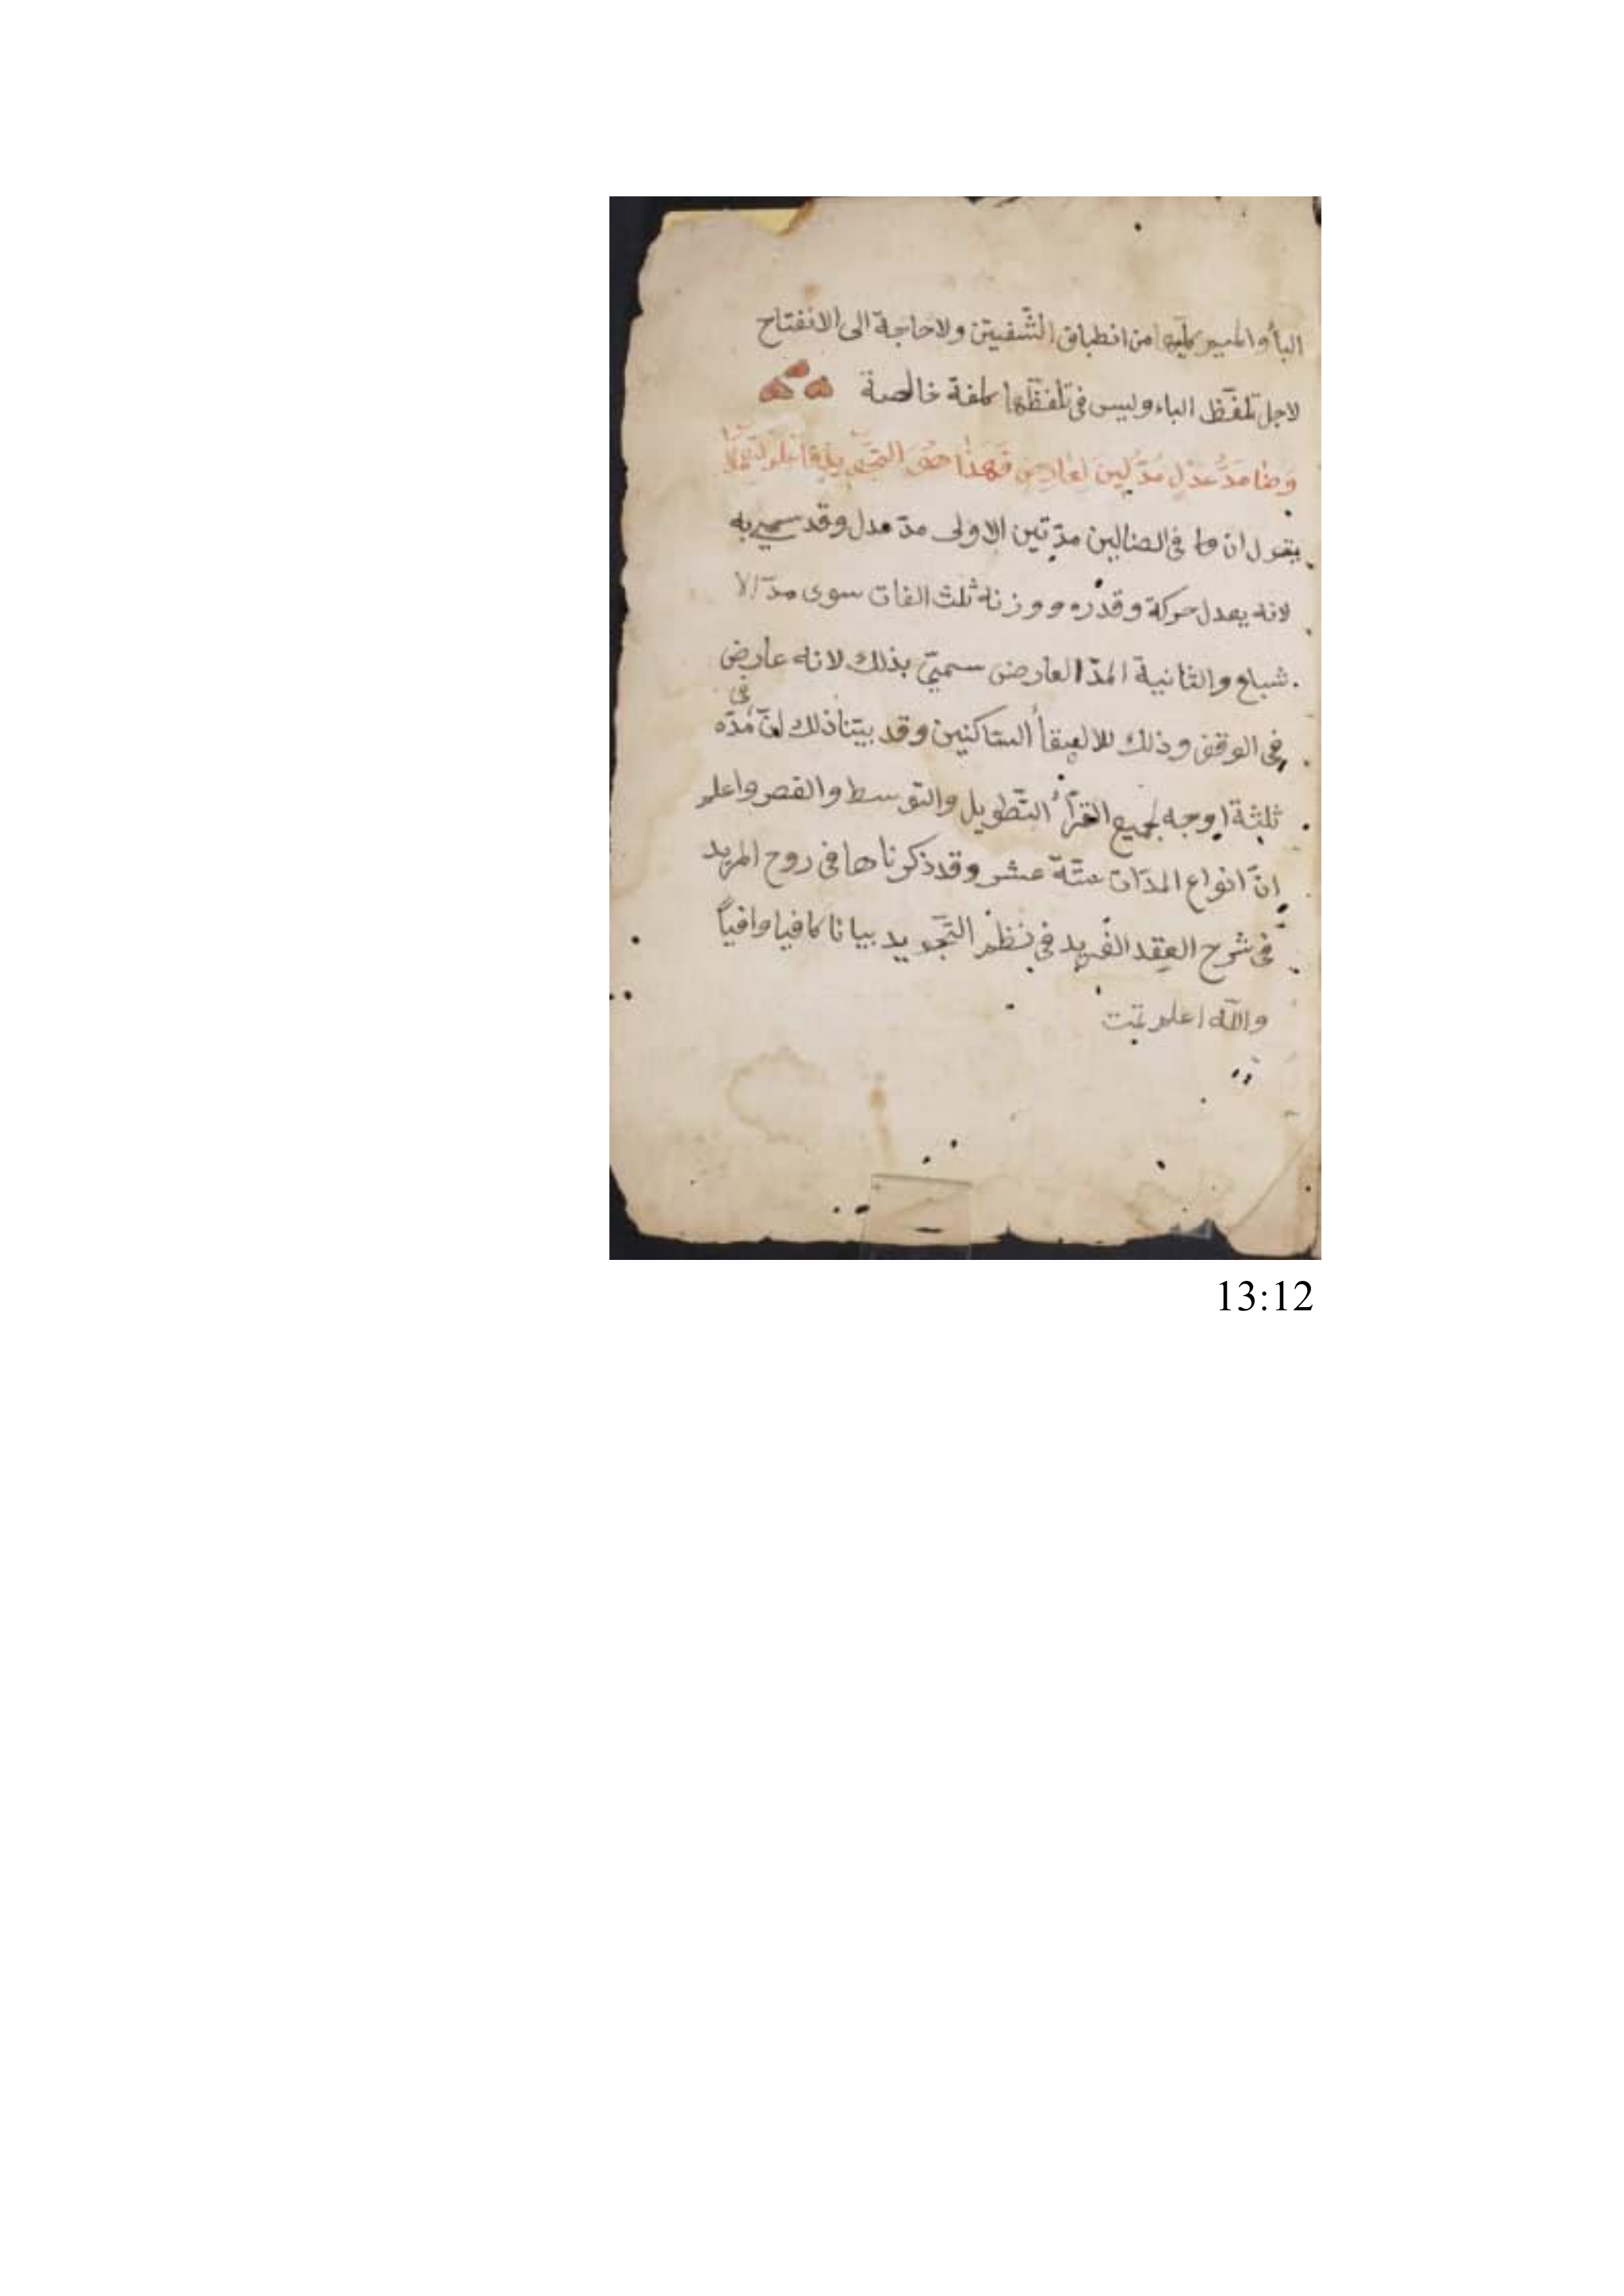 الباء والميم كليهما من انطباق الشّفتين ولا حاجة الى الانفتاح
لاجل تلفّظ الباء وليس في تلفّظها كلفة خالصة
وضا مَدُّ عدلٍ مَدُّ لين لعارض فهذا حق التجويد فاعلم
يقول ان ما في الضالين مدّتين الاولى مدّ عدل وقد سمي به
لانه يعدل حركة وقدره ووزنه ثلث الفات سوى مدّ الا
شباع والثانية المدّ العارض سميّ بذلك لانه عارض
في الوقف وذلك للالتقأ الساكنين وقد بيّنا ذلك انّ في مُدّه
ثلثة اوجه لجميع القرّأ التّطويل والتوسط والقصر واعلم
انّ انواع المدّات ستّة عشر وقد ذكرناها في روح المريد
في شرح العِقد الفريد في نظم التّجويد بيانا كافيا وافياً
والله اعلم تمت
13:12